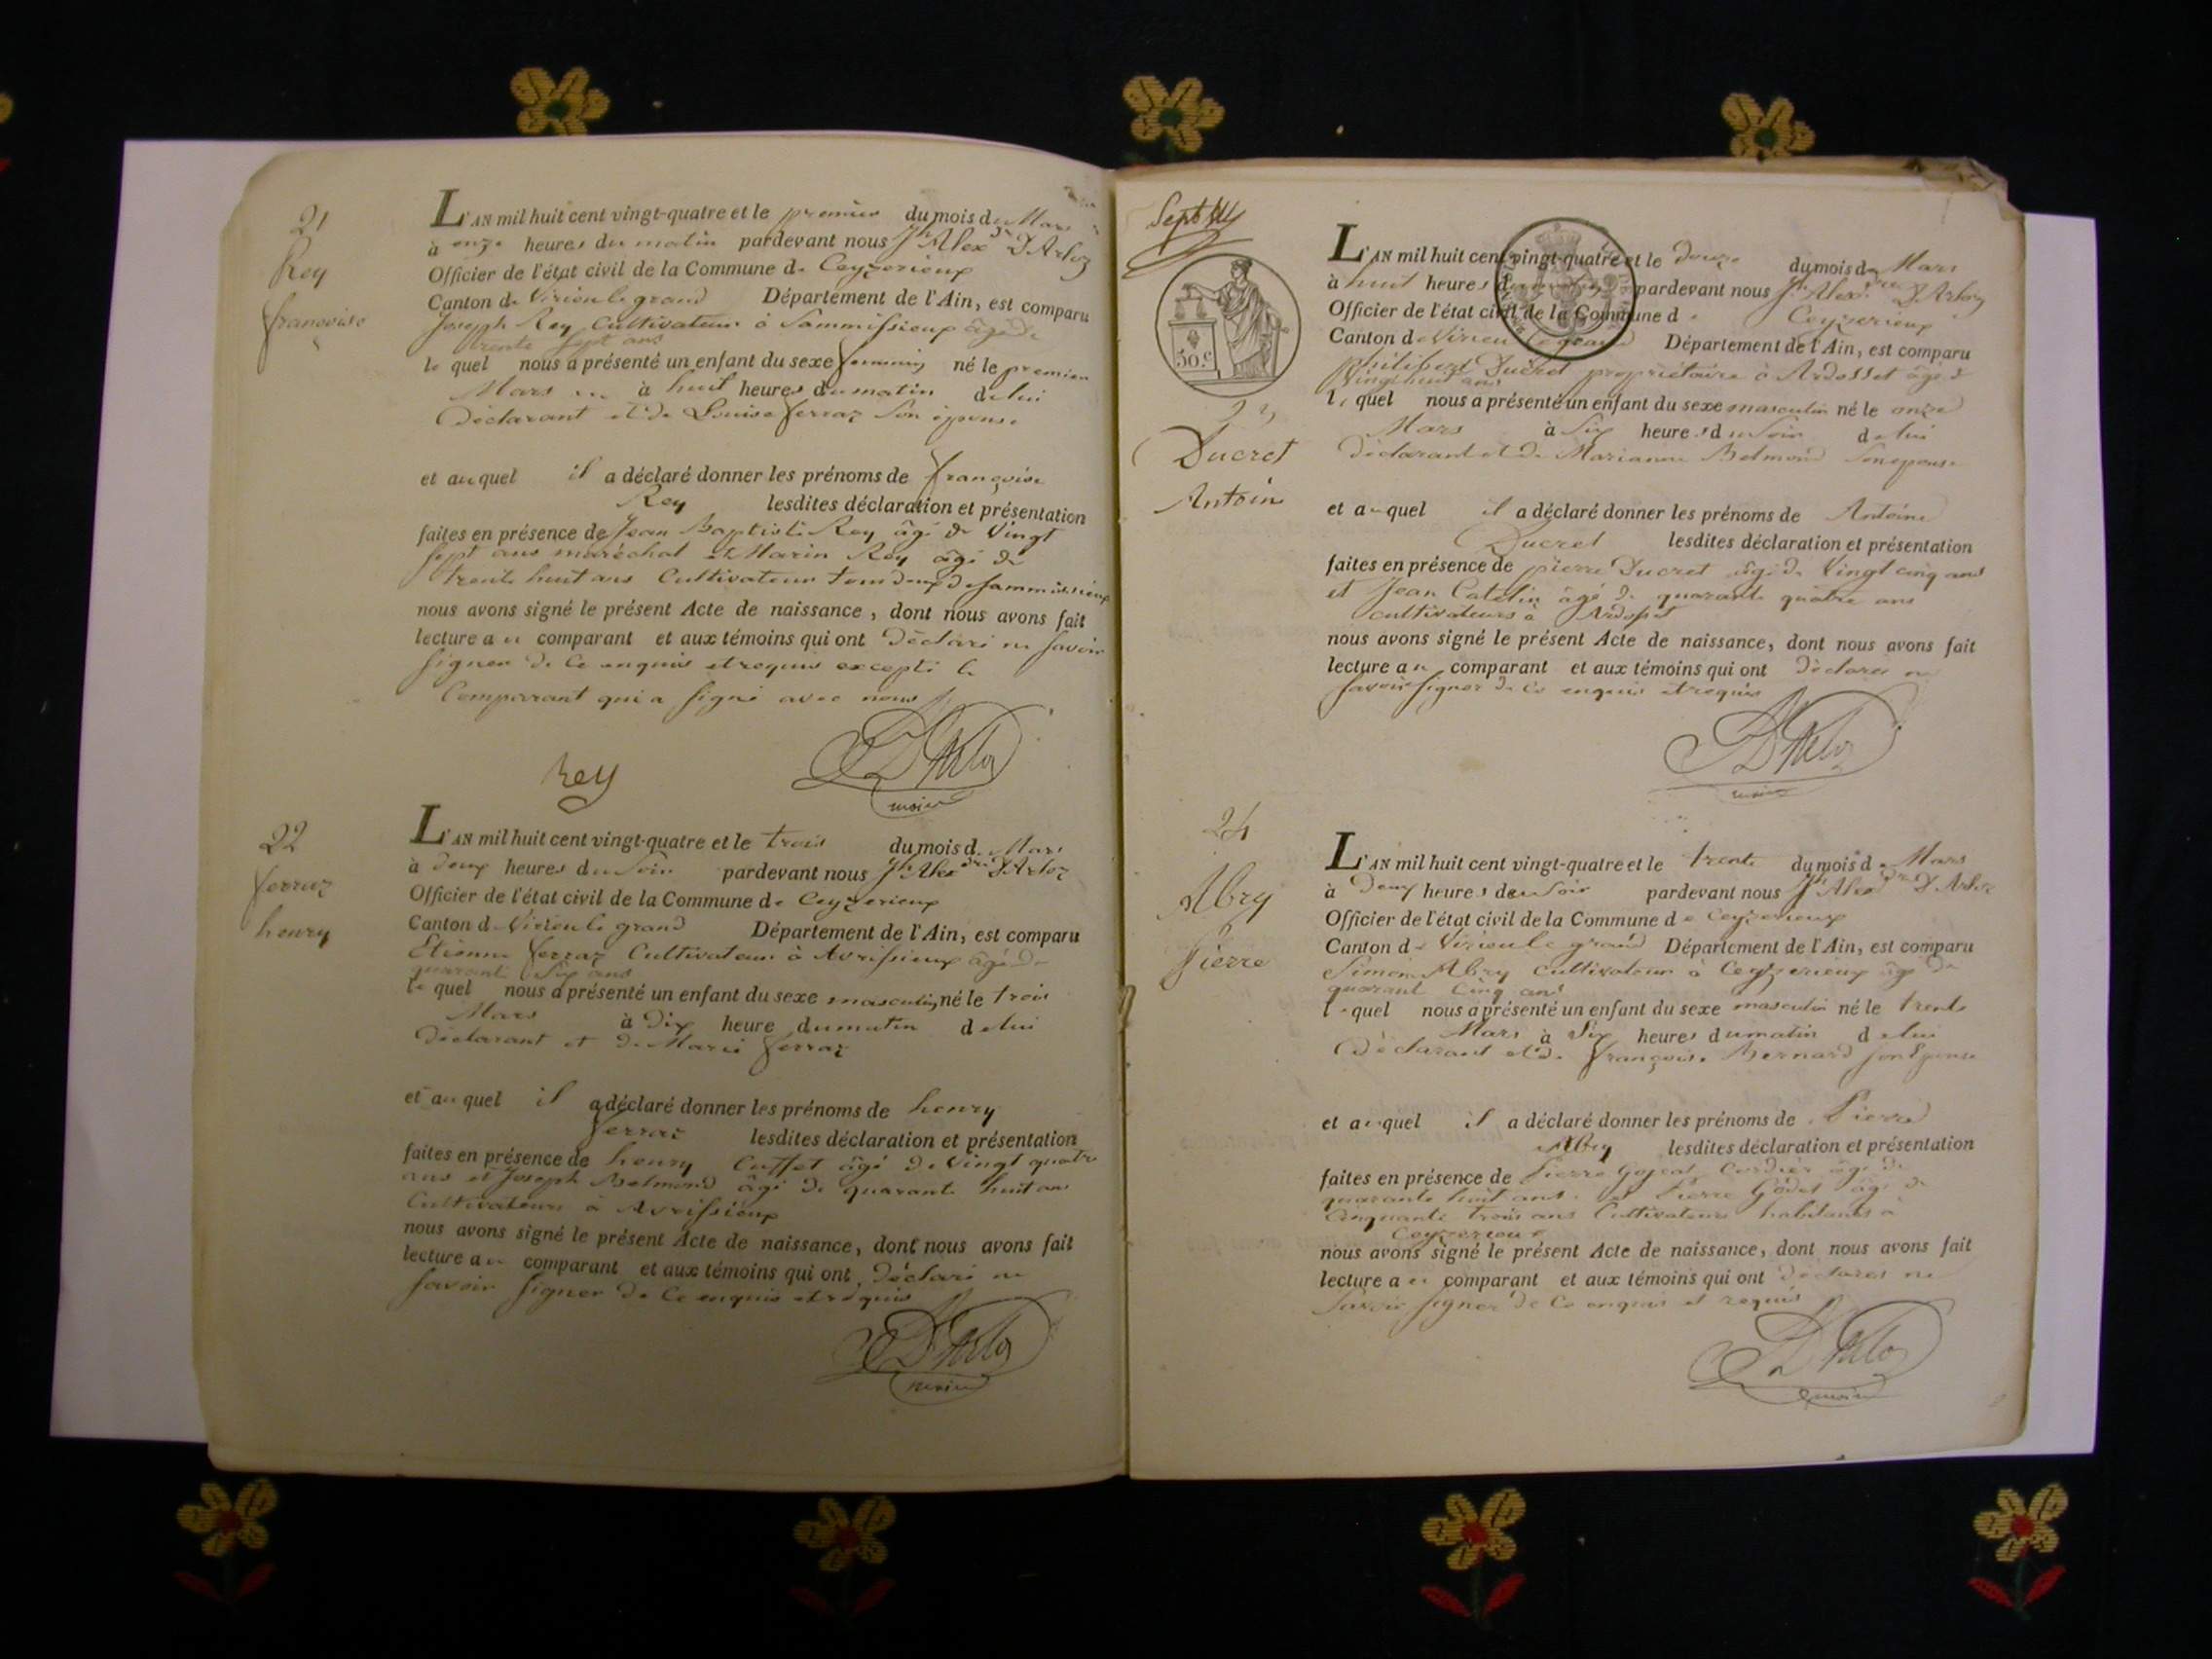 21
Rey
françoise
L'AN mil huit cent vingt-quatre et le premier du mois de Mars
à onze heures du matin pardevant nous Jh Alexdre D'Arloz
Officier de l'état civil de la Commune de Ceyzerieux
Canton de Virieu le grand Département de l'Ain, est comparu
Joseph Rey Cultivateur à Sammissieux âgé de
trente sept ans
le quel nous a présenté un enfant du sexe feminin né le premier
Mars à huit heures du matin de lui
Déclarant et de Louise ferraz Son épouse
et au quel il a déclaré donner les prénoms de françoise
Rey lesdites déclaration et présentation
faites en présence de Jean Baptiste Rey âgé de Vingt
sept ans maréchal et Marin Rey âgé de
trente huit ans Cultivateur tous deux de Sammissieux
nous avons signé le présent Acte de naissance, dont nous avons fait
lecture au comparant et aux témoins qui ont Déclaré ne savoir
signer de ce enquis et requis excepté le
Comparant qui a signé avec nous
Rey
D'Arloz
maire
22
ferraz
henry
L'AN mil huit cent vingt-quatre et le trois du mois de Mars
à deux heures du Soir pardevant nous Jh Alexdre D'Arloz
Officier de l'état civil de la Commune de Ceyzerieux
Canton de Virieu le grand Département de l'Ain, est comparu
Etienne ferraz Cultivateur à Avrissieux âgé de
quarante Six ans
le quel nous a présenté un enfant du sexe masculin né le trois
Mars à Dix heure du matin de lui
Déclarant et de Marie ferraz
et au quel il a déclaré donner les prénoms de henry
ferraz lesdites déclaration et présentation
faites en présence de henry Cuffet âgé de Vingt quatre
ans et Joseph Belmond âgé de quarante huit ans
Cultivateurs à Avrissieux
nous avons signé le présent Acte de naissance, dont nous avons fait
lecture au comparant et aux témoins qui ont Déclaré ne
savoir signer de ce enquis et requis
D'Arloz
maire
Sept
50 c
23
Ducret
Antoine
L'AN mil huit cent vingt-quatre et le douze du mois de Mars
à huit heures du pardevant nous Jh Alexdre D'Arloz
Officier de l'état civil de la Commune de Ceyzerieux
Canton de Virieu le grand Département de l'Ain, est comparu
philibert Ducret propriétaire à Ardosset âgé de
Vingt huit ans
le quel nous a présenté un enfant du sexe masculin né le onze
Mars à Six heures du Soir de lui
Déclarant et de Marianne Belmond Son epouse
et au quel il a déclaré donner les prénoms de Antoine
Ducret lesdites déclaration et présentation
faites en présence de pierre Ducret âgé de Vingt cinq ans
et Jean Catelin âgé de quarante quatre ans
cultivateurs à Ardosset
nous avons signé le présent Acte de naissance, dont nous avons fait
lecture au comparant et aux témoins qui ont déclarés ne
savoir signer de ce enquis et requis
D'Arloz
maire
24
Abry
Pierre
L'AN mil huit cent vingt-quatre et le trente du mois de Mars
à Deux heures du Soir pardevant nous Jh Alexdre D'Arloz
Officier de l'état civil de la Commune de Ceyzerieux
Canton de Virieu le grand Département de l'Ain, est comparu
Simon Abry Cultivateur à Ceyzerieux âgé de
quarant Cinq ans
le quel nous a présenté un enfant du sexe masculin né le trente
Mars à Six heures du matin de lui
Déclarant et de françoise Bernard son Epouse
et au quel il a déclaré donner les prénoms de Pierre
Abry lesdites déclaration et présentation
faites en présence de Pierre Cordier âgé de
quarante huit ans et Pierre Godet âgé de
Cinquante trois ans Cultivateurs habitants à
Ceyzerieux
nous avons signé le présent Acte de naissance, dont nous avons fait
lecture au comparant et aux témoins qui ont déclarés ne
savoir signer de ce enquis et requis
D'Arloz
maire